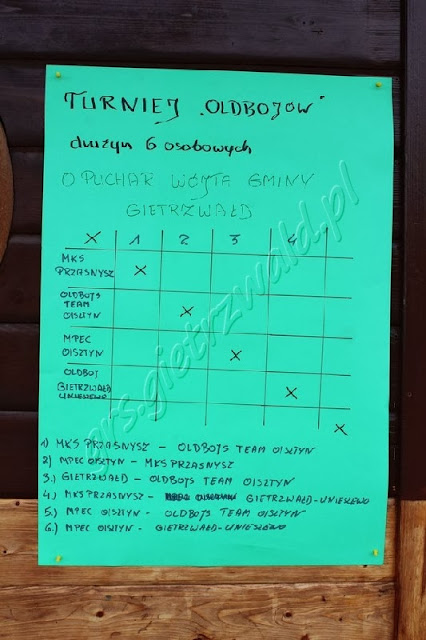 TURNIEJ „OLDBOJÓW"
drużyn 6 osobowych
O PUCHAR WÓJTA GMINY
GIETRZWAŁD
X 1 2 3 4
MKS
PRZASNYSZ X
OLDBOJS
TEAM
OLSZTYN X
MPEC
OLSZTYN X
OLDBOJ
GIETRZWAŁD
UNIESZEWO X
X
1) MKS PRZASNYSZ - OLDBOJS TEAM OLSZTYN
2) MPEC OLSZTYN - MKS PRZASNYSZ
3.) GIETRZWAŁD - OLDBOJS TEAM OLSZTYN
4.) MKS PRZASNYSZ - GIETRZWAŁD-UNIESZEWO
5.) MPEC OLSZTYN - OLDBOJS TEAM OLSZTYN
6.) MPEC OLSZTYN - GIETRZWAŁD-UNIESZEWO
grs.gietrzwald.pl